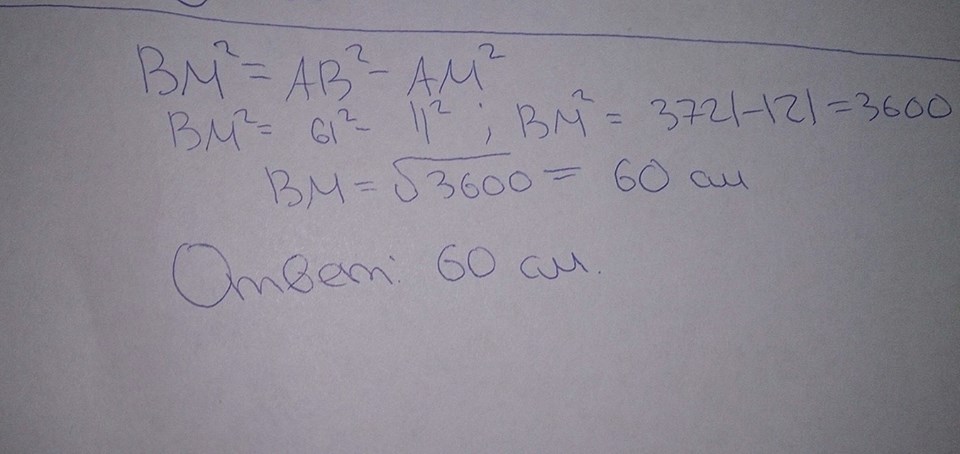 BM² = AB² - AM²
BM² = 61² - 11² ; BM² = 3721-121=3600
BM = √3600 = 60 см
Ответ: 60 см.